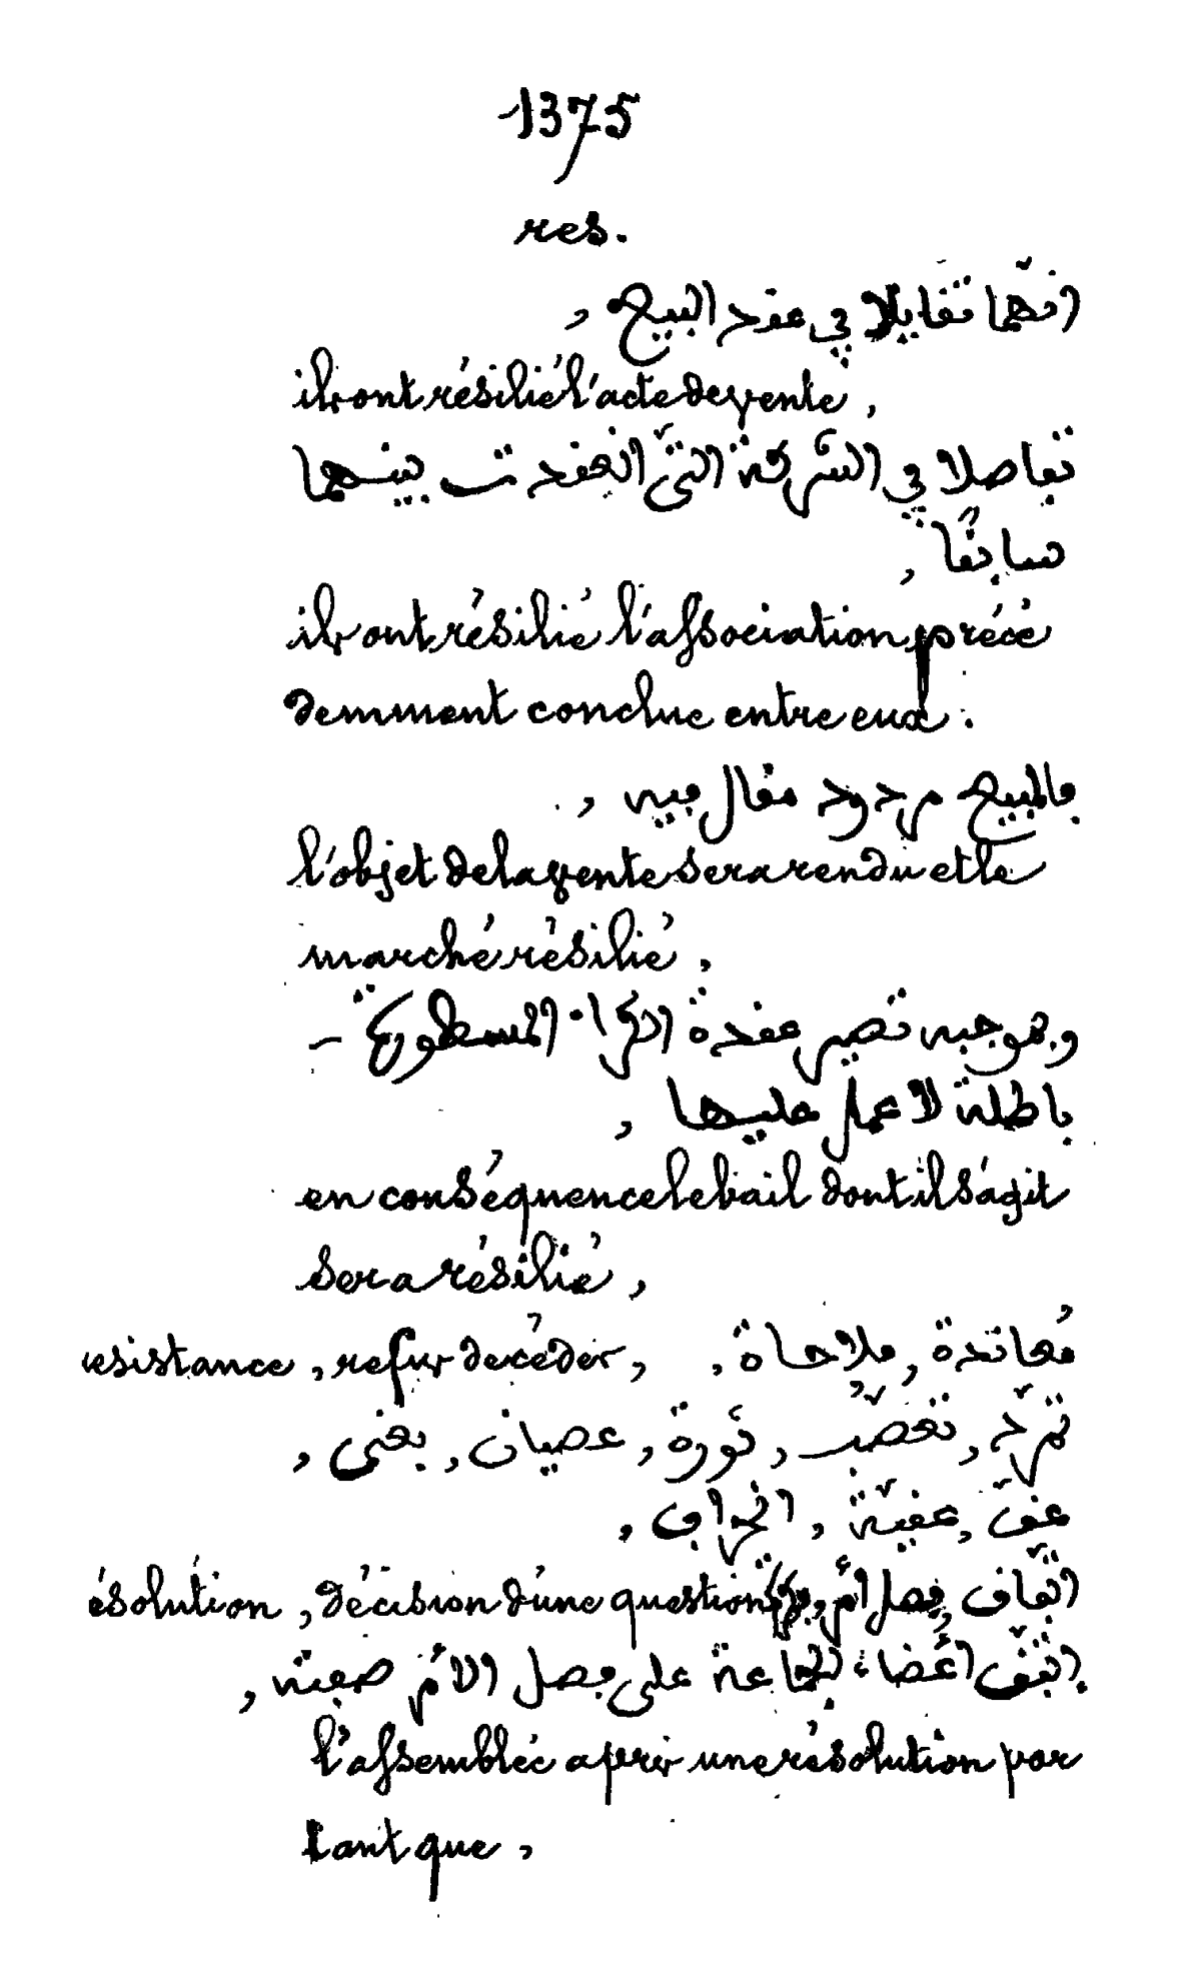 1375
res.
انّهما تقايلا في عقد البيع ,
ils ont résilié l'acte de vente ,
تفاصلا في الشركة التّى انعقدت بينهما
سابقًا ,
ils ont résilié l'association précé
demment conclue entre eux .
فالمبيع مردود مقال فيه ,
l'objet de la vente sera rendu et le
marché résilié ,
وبموجبه تصير عقدة الكراء المسطورة –
باطلة لا عمل عليها ,
en conséquence le bail dont il s'agit
sera résilié ,
esistance , refus de céder , مُعاندة , ملاحاة ,
تمرّد , تعصّب , ثورة , عصيان , بغى ,
انحراف ,
ésolution , décision d'une question اتّفاق , فصل أمر ,
اتّفق أعضاء الجماعة على فصل الأمر
l'assemblée a pris une résolution por
tant que ,